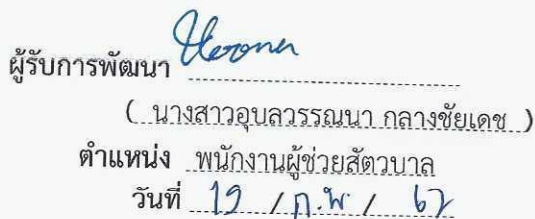 ผู้รับการพัฒนา
( นางสาวอุบลวรรณนา กลางชัยเดช )
ตำแหน่ง พนักงานผู้ช่วยสัตวบาล
วันที่ 19 / ก.พ. / 62